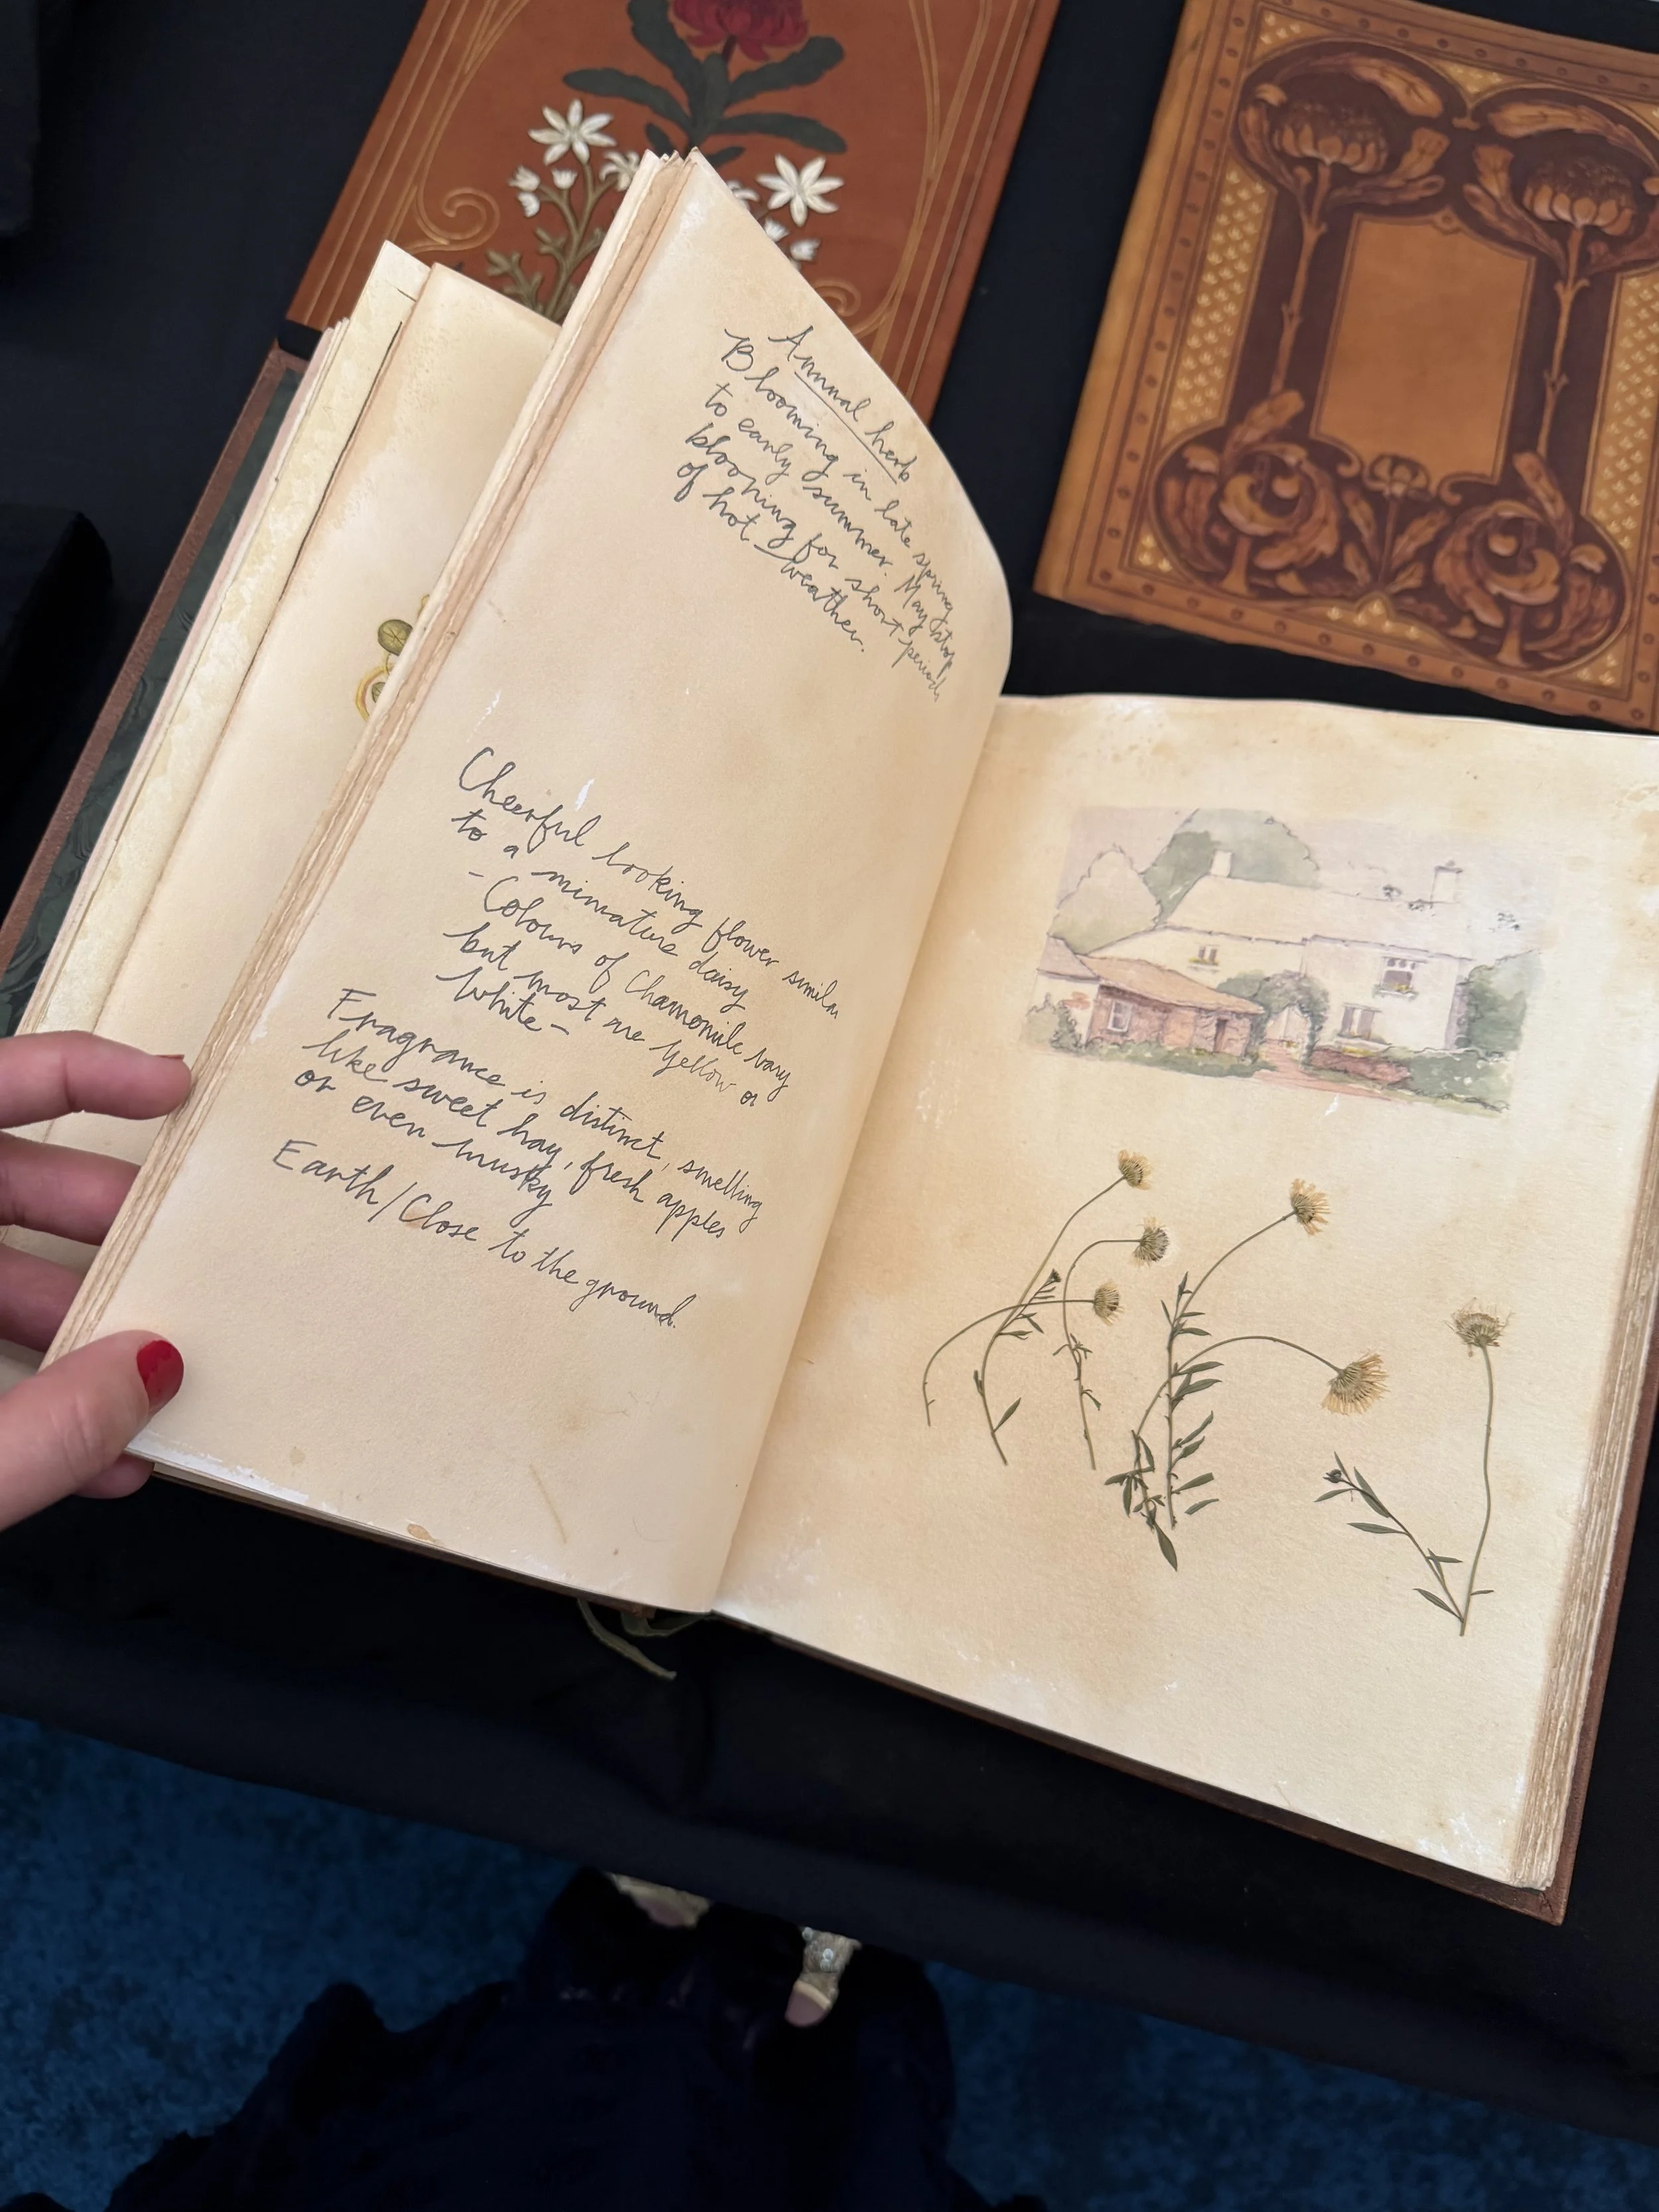 Annual herb
Blooming in late spring
to early summer. May stop
blooming for short periods
of hot weather.
Cheerful looking flower similar
to a miniature daisy
- Colours of Chamomile vary
but most are yellow or
white -
Fragrance is distinct, smelling
like sweet hay, fresh apples
or even musky
Earth/Close to the ground.